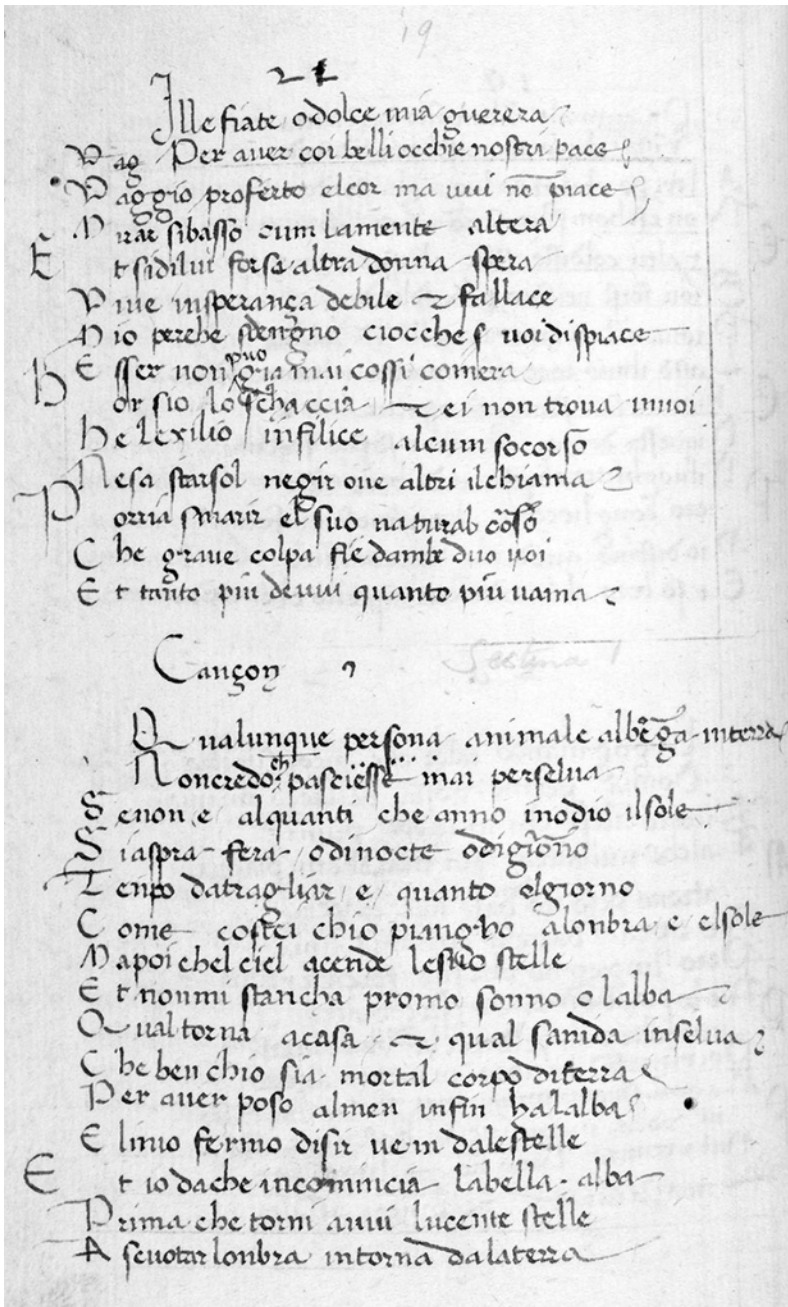 19
21
Ille fiate o dolce mia guerera
Vag Per aver coi belli occhi e nostri pace
V aggio proferto el cor ma vui nō piace
M irar si basso cum la mente altera
E t si di lui forse altra donna spera
V ive in sperança debile et fallace
M io perche sdengno cio cche s voi dispiace
E sser non puo gia mai cossi comera
H or sio lo schaccia et ei non trova in voi
N e lexilio infilice alcum socorso
N e sa star sol ne gir ove altri il chiama
P orria smarir el suo natural cōso
C he grave colpa fie dambe duo voi
E t tanto piu de vui quanto piu vama
Cançon
Sestina 1
Q ualunque persona animale alberga in terra
N on credo ch pasciesse mai per selva
S e non e alquanti che anno in odio il sole
S ia aspra fera o di nocte o di giorno
T enpo da tragliar e quanto el giorno
C ome costei chio piangho a lonbra e el sole
M a poi chel ciel acende le stelle
E t non mi stancha promo sonno o lalba
Q ual torna a casa et qual sanida in selva
C he ben chio sia mortal corpo di terra
P er aver poso almen infin ha lalba
E l mio fermo disir vem da le stelle
E t io da che incomincia la bella alba
P rima che torni a vui lucente stelle
A scuotar lonbra intorna da la terra